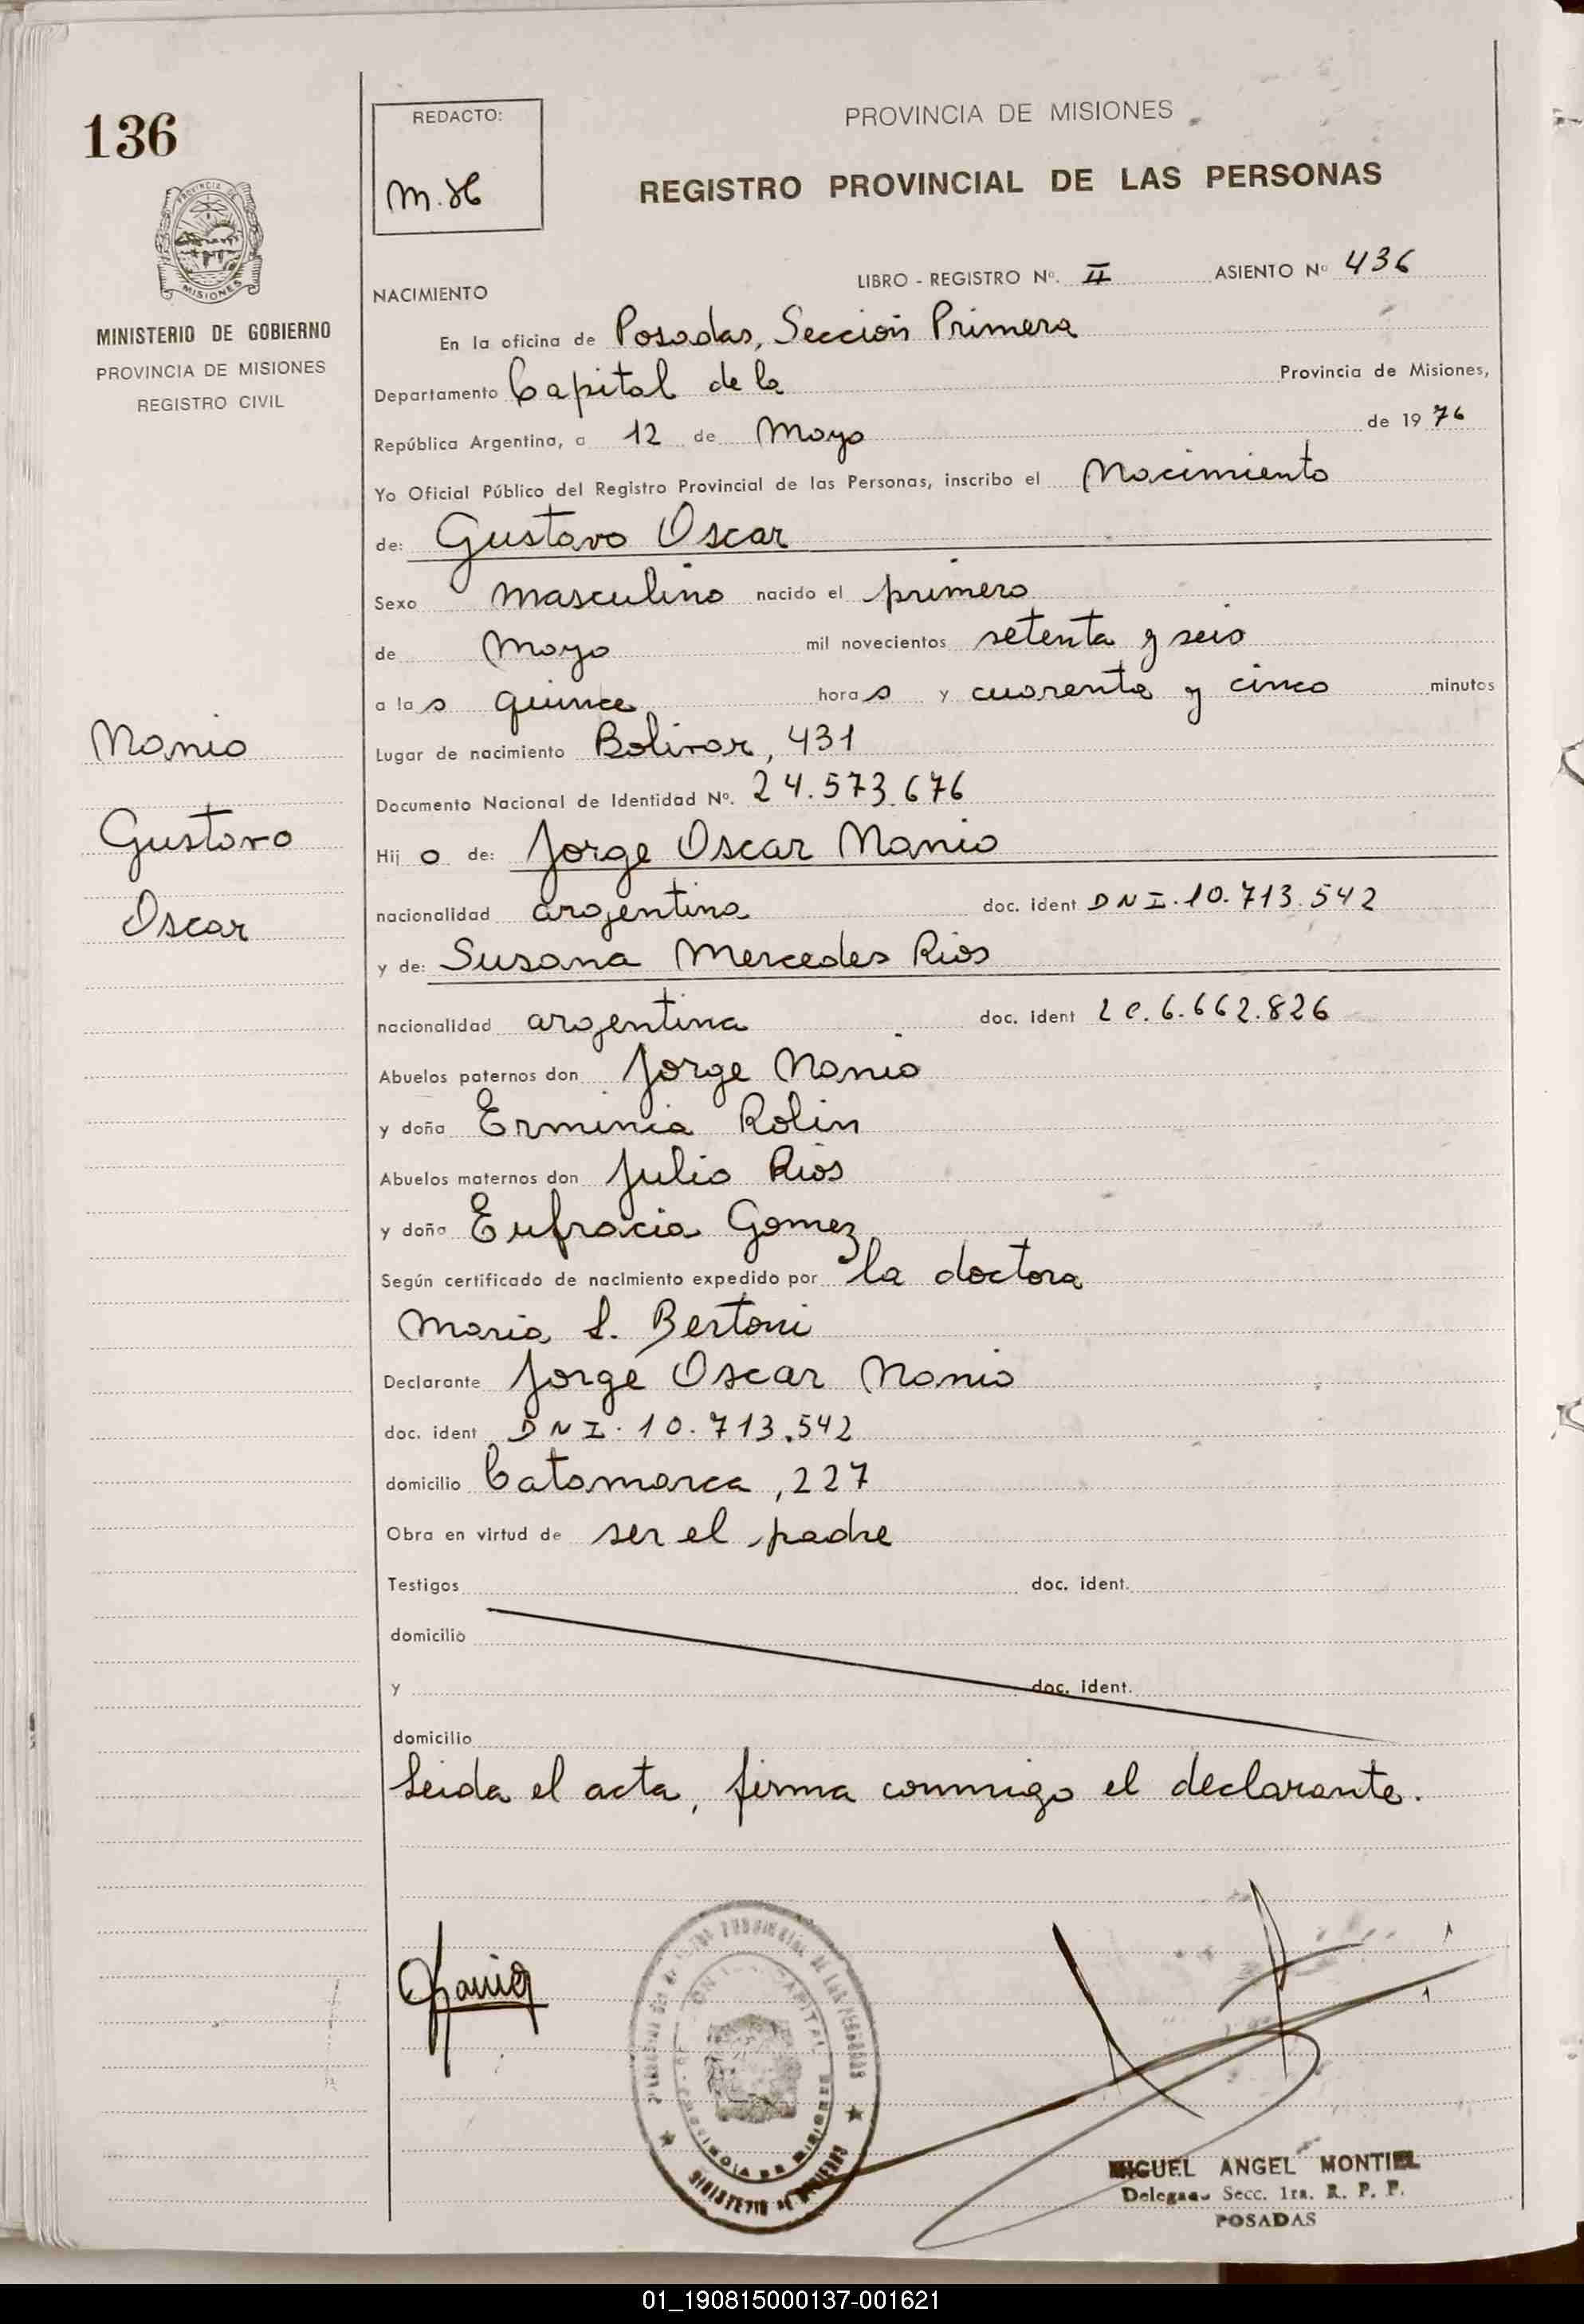 136
MINISTERIO DE GOBIERNO
PROVINCIA DE MISIONES
REGISTRO CIVIL
Nanio
Gustavo
Oscar
REDACTO:
PROVINCIA DE MISIONES
REGISTRO PROVINCIAL DE LAS PERSONAS
NACIMIENTO
LIBRO - REGISTRO Nº. II ASIENTO Nº 436
En la oficina de Posadas, Sección Primera
Departamento Capital de la Provincia de Misiones,
República Argentina, a 12 de Mayo de 1976
Yo Oficial Público del Registro Provincial de las Personas, inscribo el Nacimiento
de: Gustavo Oscar
Sexo masculino nacido el primero
de Mayo mil novecientos setenta y seis
a las quince horas y cuarenta y cinco minutos
Lugar de nacimiento Bolivar, 431
Documento Nacional de Identidad Nº. 24.573.676
Hijo de: Jorge Oscar Nanio
nacionalidad argentina doc. ident DNI. 10.713.542
y de: Susana Mercedes Rios
nacionalidad argentina doc. ident LC. 6.662.826
Abuelos paternos don Jorge Nanio
y doña Erminia Rolin
Abuelos maternos don Julio Rios
y doña Eufracia Gomez
Según certificado de nacimiento expedido por la doctora
Maria L. Bertoni
Declarante Jorge Oscar Nanio
doc. ident DNI. 10.713.542
domicilio Catamarca, 227
Obra en virtud de ser el padre
Testigos doc. ident.
domicilio
y doc. ident.
domicilio
Leida el acta, firma conmigo el declarante.
MIGUEL ANGEL MONTIEL
Delegado Secc. 1ra. R. P. P.
POSADAS
01_190815000137-001621